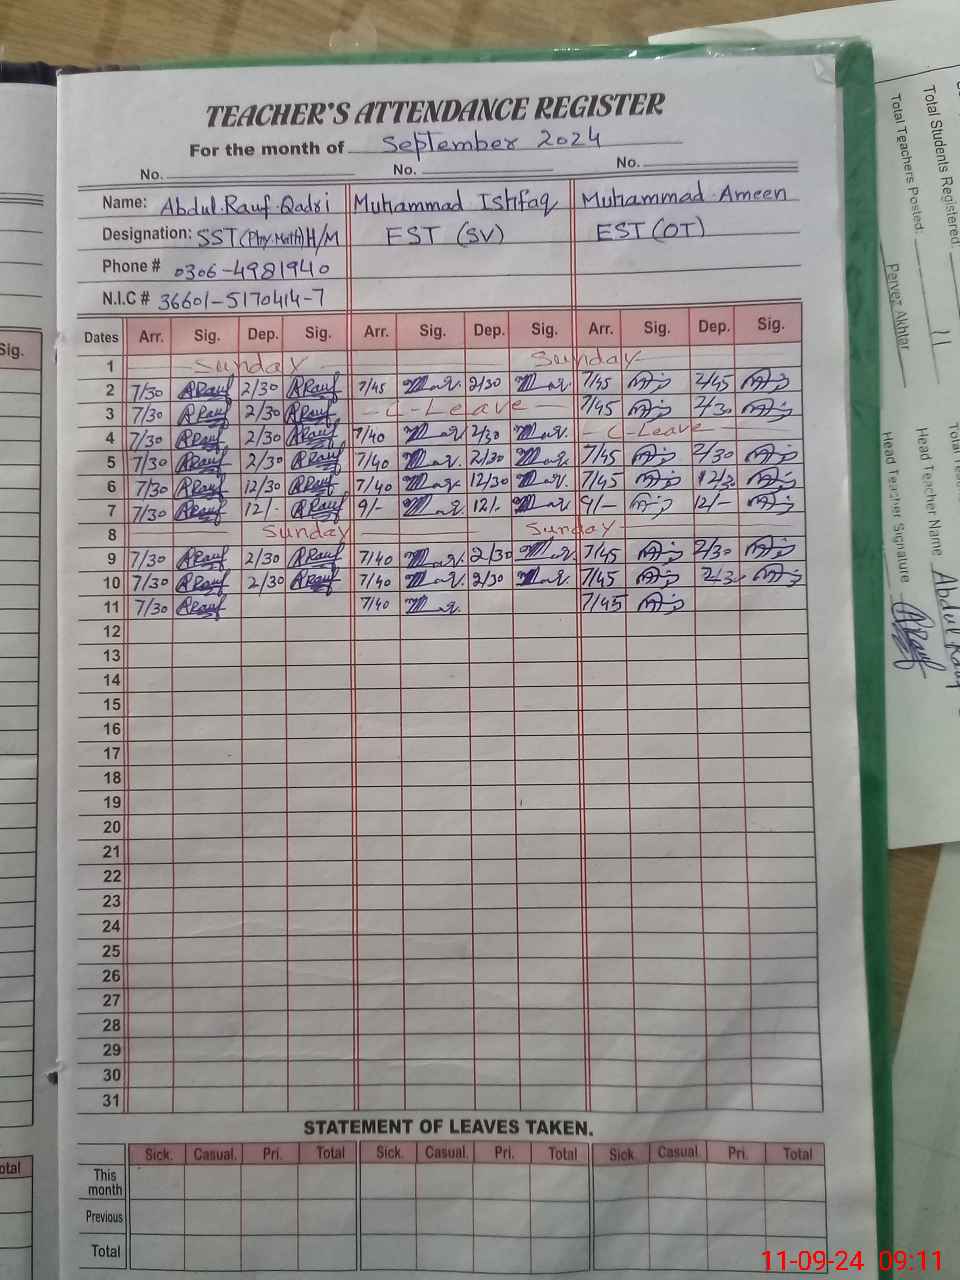 TEACHER'S ATTENDANCE REGISTER
For the month of September 2024
No. No. No.
Name: Abdul Rauf Qadri Muhammad Ishfaq Muhammad Ameen
Designation: SST (Phy.Math) H/M EST (SV) EST (OT)
Phone # 0306-4981940
N.I.C # 36601-5170414-7
Dates Arr. Sig. Dep. Sig. Arr. Sig. Dep. Sig. Arr. Sig. Dep. Sig.
1 Sunday Sunday
2 7/30 ARauf 2/30 ARauf 7/45 2/30 7/45 2/45
3 7/30 ARauf 2/30 ARauf C-Leave 7/45 2/30
4 7/30 ARauf 2/30 ARauf 7/40 2/30 C-Leave
5 7/30 ARauf 2/30 ARauf 7/40 2/30 7/45 2/30
6 7/30 ARauf 12/30 ARauf 7/40 12/30 7/45
7 7/30 ARauf 12/- ARauf 9/- 12/- 9/- 12/-
8 Sunday Sunday
9 7/30 ARauf 2/30 ARauf 7/40 2/30 7/45 2/30
10 7/30 ARauf 2/30 ARauf 7/40 2/30 7/45
11 7/30 ARauf 7/40 7/45
12
13
14
15
16
17
18
19
20
21
22
23
24
25
26
27
28
29
30
31
STATEMENT OF LEAVES TAKEN.
Sick. Casual. Pri. Total Sick. Casual. Pri. Total Sick. Casual Pri. Total
This month
Previous
Total
Sig.
otal
Total Students Registered:
Total Teachers Posted: 11
Parvez Akhtar
Head Teacher Name Abdul Rauf
Head Teacher Signature ARauf
11-09-24 09:11